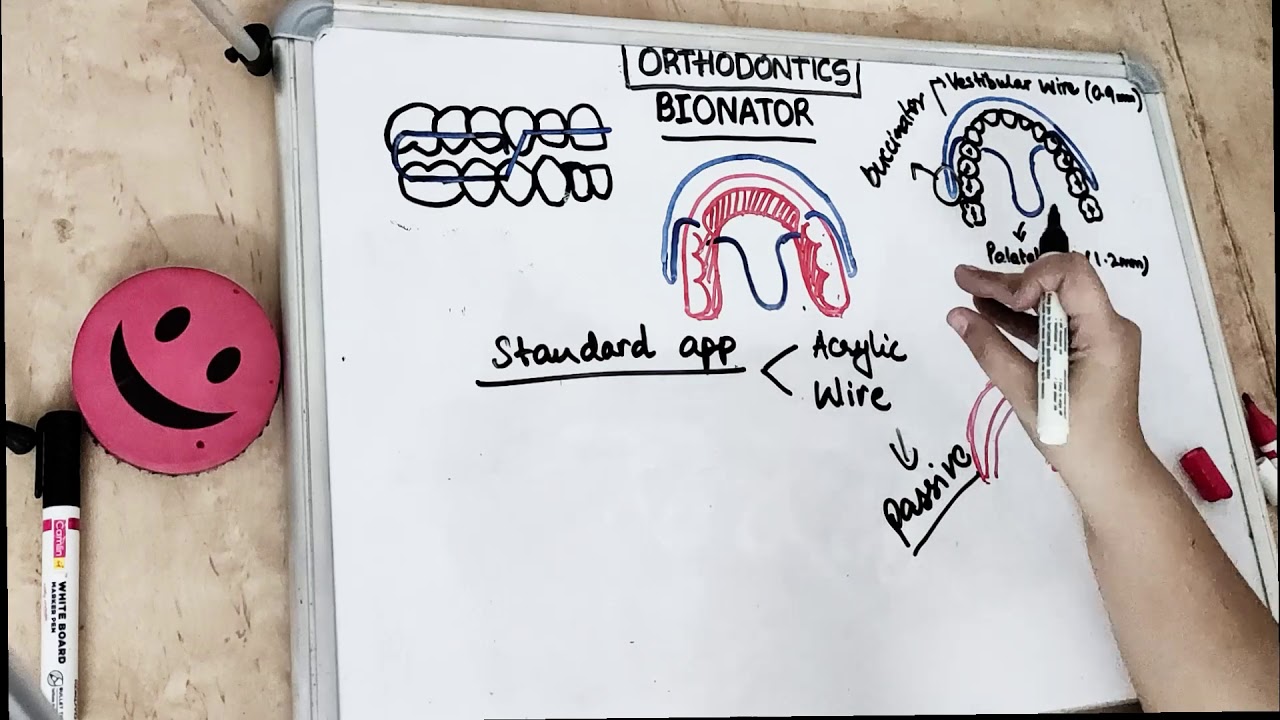 ORTHODONTICS
BIONATOR
Vestibular wire (0.9mm)
buccinator
Palatal (1.2mm)
Standard app
Acrylic
Wire
passive
Camlin
WHITE BOARD
MARKER PEN